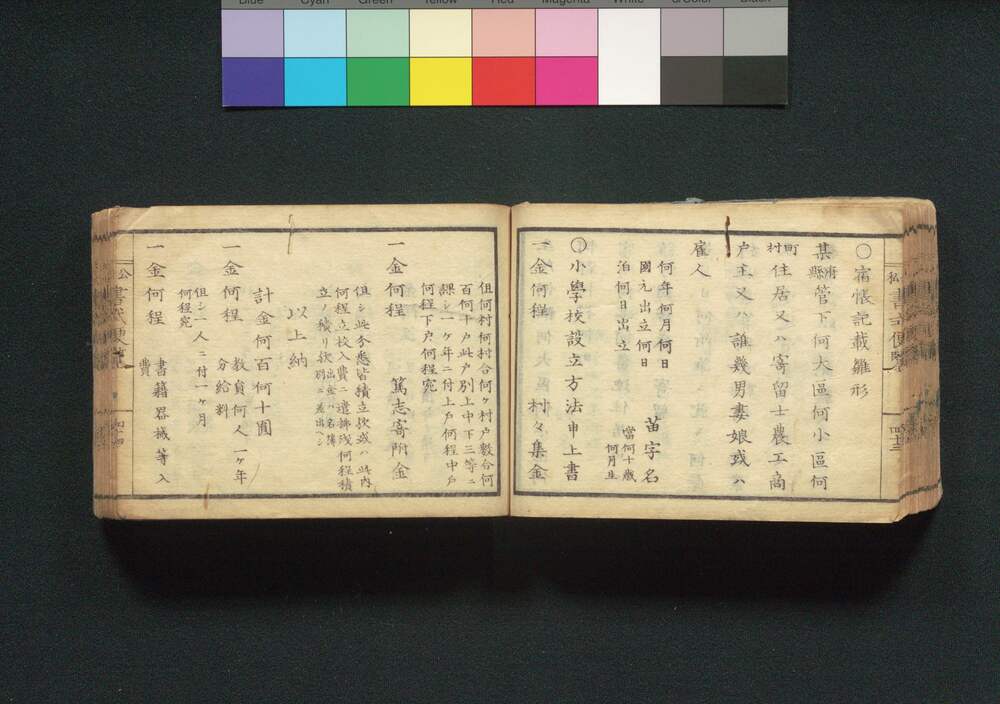 Blue Cyan Green Yellow Red Magenta White 3/Color Black
〇宿帳記載雛形
某府縣管下何大區何小區何
町村住居又ハ寄留士農工商
戸主又ハ誰幾男妻娘或ハ
雇人
何年何月何日
國元出立何日
泊何日出立
苗字名
當何十歳
何月生
〇小學校設立方法申上書
一金何程 村々集金
但何村何村合何ヶ村戸數合何
百何十戸此戸別上中下三等ニ
課シ一ヶ年ニ付上戸何程中戸
何程下戸何程宛
一金何程 篤志寄附金
但シ此分悉皆積立或ハ此内
何程立校入費ニ遣拂残何程積
立ノ積リ
以上納
計金何百何十圓
一金何程 教員何人一ヶ年
分給料
但シ一人ニ付一ヶ月
何程宛
一金何程 書籍器械等入
費